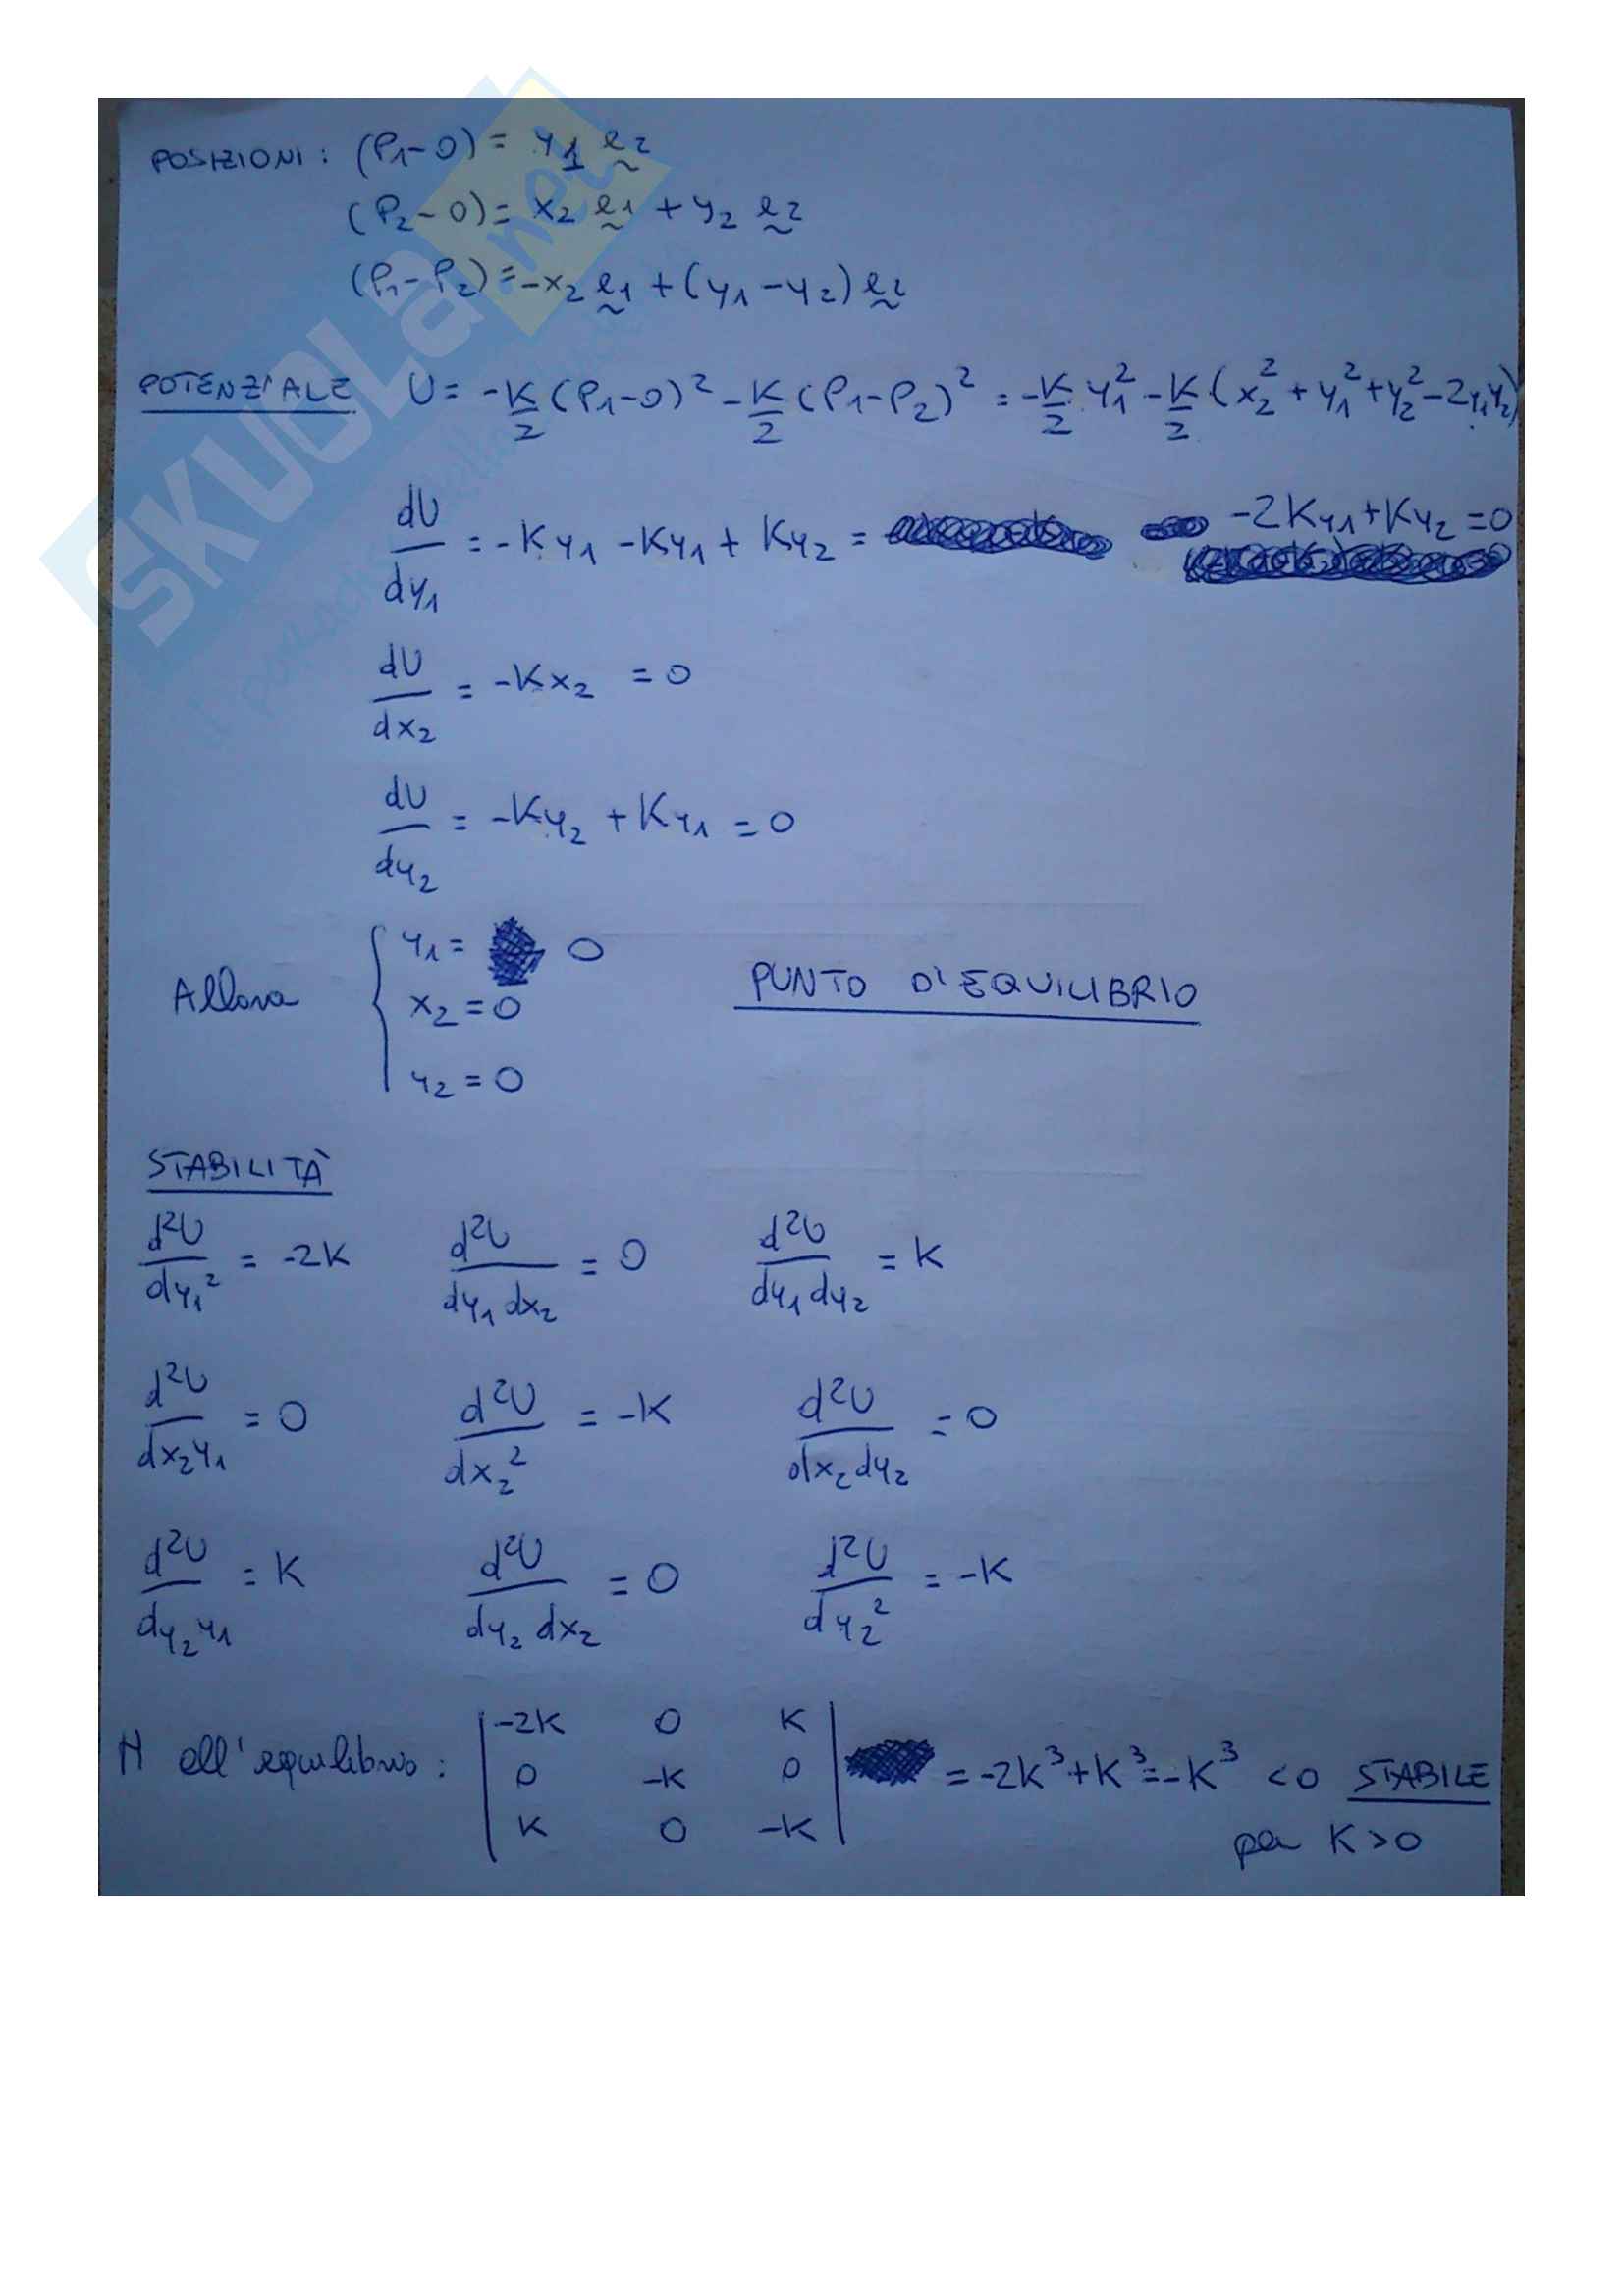 POSIZIONI: (P1-O)= y1 e2
(P2-O)= x2 e1 + y2 e2
(P1-P2)=-x2 e1 + (y1-y2) e2
POTENZIALE U= -K/2 (P1-O)² - K/2 (P1-P2)² = -K/2 y1² - K/2 (x2² + y1² + y2² - 2y1y2)
dU/dy1 = -Ky1 - Ky1 + Ky2 = -2Ky1 + Ky2 = 0
dU/dx2 = -Kx2 = 0
dU/dy2 = -Ky2 + Ky1 = 0
Allora { y1 = 0
x2 = 0 PUNTO D'EQUILIBRIO
y2 = 0
STABILITÀ
d²U/dy1² = -2K d²U/dy1 dx2 = 0 d²U/dy1 dy2 = K
d²U/dx2y1 = 0 d²U/dx2² = -K d²U/dx2 dy2 = 0
d²U/dy2y1 = K d²U/dy2 dx2 = 0 d²U/dy2² = -K
H all'equilibrio: | -2K 0 K |
| 0 -K 0 | = -2K³+K³=-K³ <0 STABILE
| K 0 -K | per K>0
SKUOLA.net